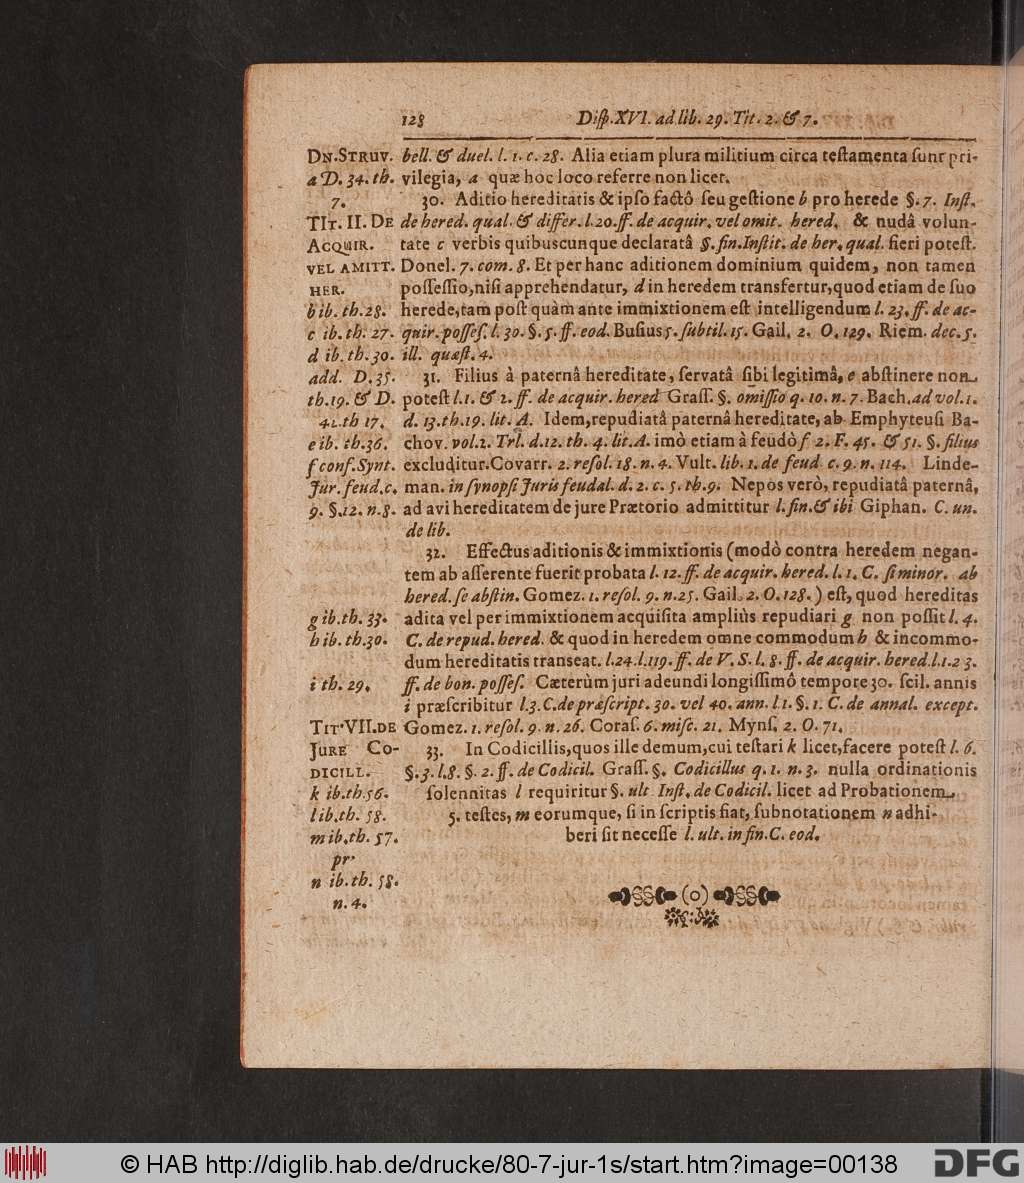 128 Disp. XVI. ad lib. 29. Tit. 2. & 7.
DN. STRUV.
a D. 34. th.
7.
TIT. II. DE
ACQUIR.
VEL AMITT.
HER.
b ib. th. 28.
c ib. th. 27.
d ib. th. 30.
add. D. 35.
th. 19. & D.
41. th 17.
e ib. th. 36.
f conf. Synt.
Jur. feud. c.
9. §. 12. n. 8.
g ib. th. 33.
h ib. th. 30.
i th. 29.
TIT. VII. DE
JURE CO-
DICILL.
k ib. th. 56.
l ib. th. 58.
m ib. th. 57.
pr.
n ib. th. 58.
n. 4.
bell. & duel. l. 1. c. 28. Alia etiam plura militium circa teſtamenta ſunt pri-
vilegia, a quæ hoc loco referre non licet.
30. Aditio hereditatis & ipſo factô ſeu geſtione b pro herede §. 7. Inſt.
de hered. qual. & differ. l. 20. ff. de acquir. vel omit. hered. & nudâ volun-
tate c verbis quibuscunque declaratâ §. fin. Inſtit. de her. qual. fieri poteſt.
Donel. 7. com. 8. Et per hanc aditionem dominium quidem, non tamen
poſſeſſio, niſi apprehendatur, d in heredem transfertur, quod etiam de ſuo
herede, tam poſt quàm ante immixtionem eſt intelligendum l. 23. ff. de ac-
quir. poſſeſ. l. 30. §. 5. ff. eod. Buſius 5. ſubtil. 15. Gail. 2. O. 129. Riem. dec. 5.
ill. quæſt. 4.
31. Filius à paternâ hereditate, ſervatâ ſibi legitimâ, e abſtinere non
poteſt l. 1. & 2. ff. de acquir. hered Graſſ. §. omiſſio q. 10. n. 7. Bach. ad vol. 1.
d. 13. th. 19. lit. A. Idem, repudiatâ paternâ hereditate, ab Emphyteuſi Ba-
chov. vol. 2. Trl. d. 12. th. 4. lit. A. imò etiam à feudò f 2. F. 45. & 51. §. filius
excluditur. Covarr. 2. reſol. 18. n. 4. Vult. lib. 1. de feud c. 9. n. 114. Linde-
man. in ſynopſi Juris feudal. d. 2. c. 5. th. 9. Nepos verò, repudiatâ paternâ,
ad avi hereditatem de jure Prætorio admittitur l. fin. & ibi Giphan. C. un.
de lib.
32. Effectus aditionis & immixtionis (modò contra heredem negan-
tem ab aſſerente fuerit probata l. 12. ff. de acquir. hered. l. 1. C. ſi minor. ab
hered. ſe abſtin. Gomez. 1. reſol. 9. n. 25. Gail. 2. O. 128.) eſt, quod hereditas
adita vel per immixtionem acquiſita ampliùs repudiari g non poſſit l. 4.
C. de repud. hered. & quod in heredem omne commodum h & incommo-
dum hereditatis transeat. l. 24. l. 119. ff. de V. S. l. 8. ff. de acquir. hered. l. 1. 2 3.
ff. de bon. poſſeſ. Cæterùm juri adeundi longiſſimô tempore 30. ſcil. annis
i præſcribitur l. 3. C. de præſcript. 30. vel 40. ann. l. 1. §. 1. C. de annal. except.
Gomez. 1. reſol. 9. n. 26. Coraſ. 6. miſc. 21. Mynſ. 2. O. 71.
33. In Codicillis, quos ille demum, cui teſtari k licet, facere poteſt l. 6.
§. 3. l. 8. §. 2. ff. de Codicil. Graſſ. §. Codicillus q. 1. n. 3. nulla ordinationis
ſolennitas l requiritur §. ult Inſt. de Codicil. licet ad Probationem
5. teſtes, m eorumque, ſi in ſcriptis fiat, ſubnotationem n adhi-
beri ſit neceſſe l. ult. in fin. C. eod.
(o)
© HAB http://diglib.hab.de/drucke/80-7-jur-1s/start.htm?image=00138
DFG